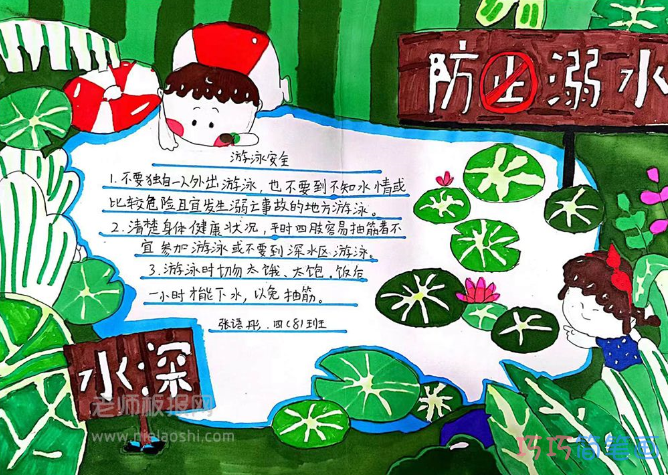 防止溺水
游泳安全
1.不要独自一人外出游泳，也不要到不知水情或
比较危险且宜发生溺亡事故的地方游泳。
2.清楚身体健康状况，平时四肢容易抽筋者不
宜参加游泳或不要到深水区游泳。
3.游泳时切勿太饿、太饱，饭后
一小时才能下水，以免抽筋。
张语彤.四(8)班
水深
老师板报网
www.nielaoshi.com
巧巧简笔画